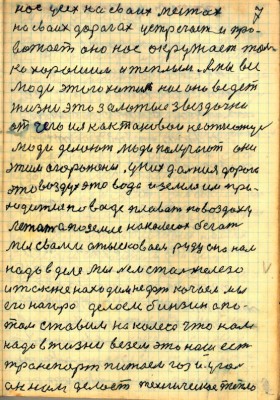 нос усех на своих местах 7
на своих дорогах устречает и про-
вожает оно нас окружает толь
ко хорошим и теплым. А мы все
люди этого хотим нас оно ведет
жизни это золотые звездочки
от чего их как таковых не отнимеш
люди делают люди получают они
этим огорожены. у них данная дорога
это воздух это вода и земля им при-
ходится по воде плавать по воздуху
летать а по земле на колесах бегать
мы свами отысковаем руду она нам
надо в деле мы льем сталь железо
и тоже находим недра качаем мы
его на гора делаем бинзин а по-
том ставим на колесо что нам
надо в жизни везем это наш ест
транспорт питаем газ и угол
он нам делает техническое тепло